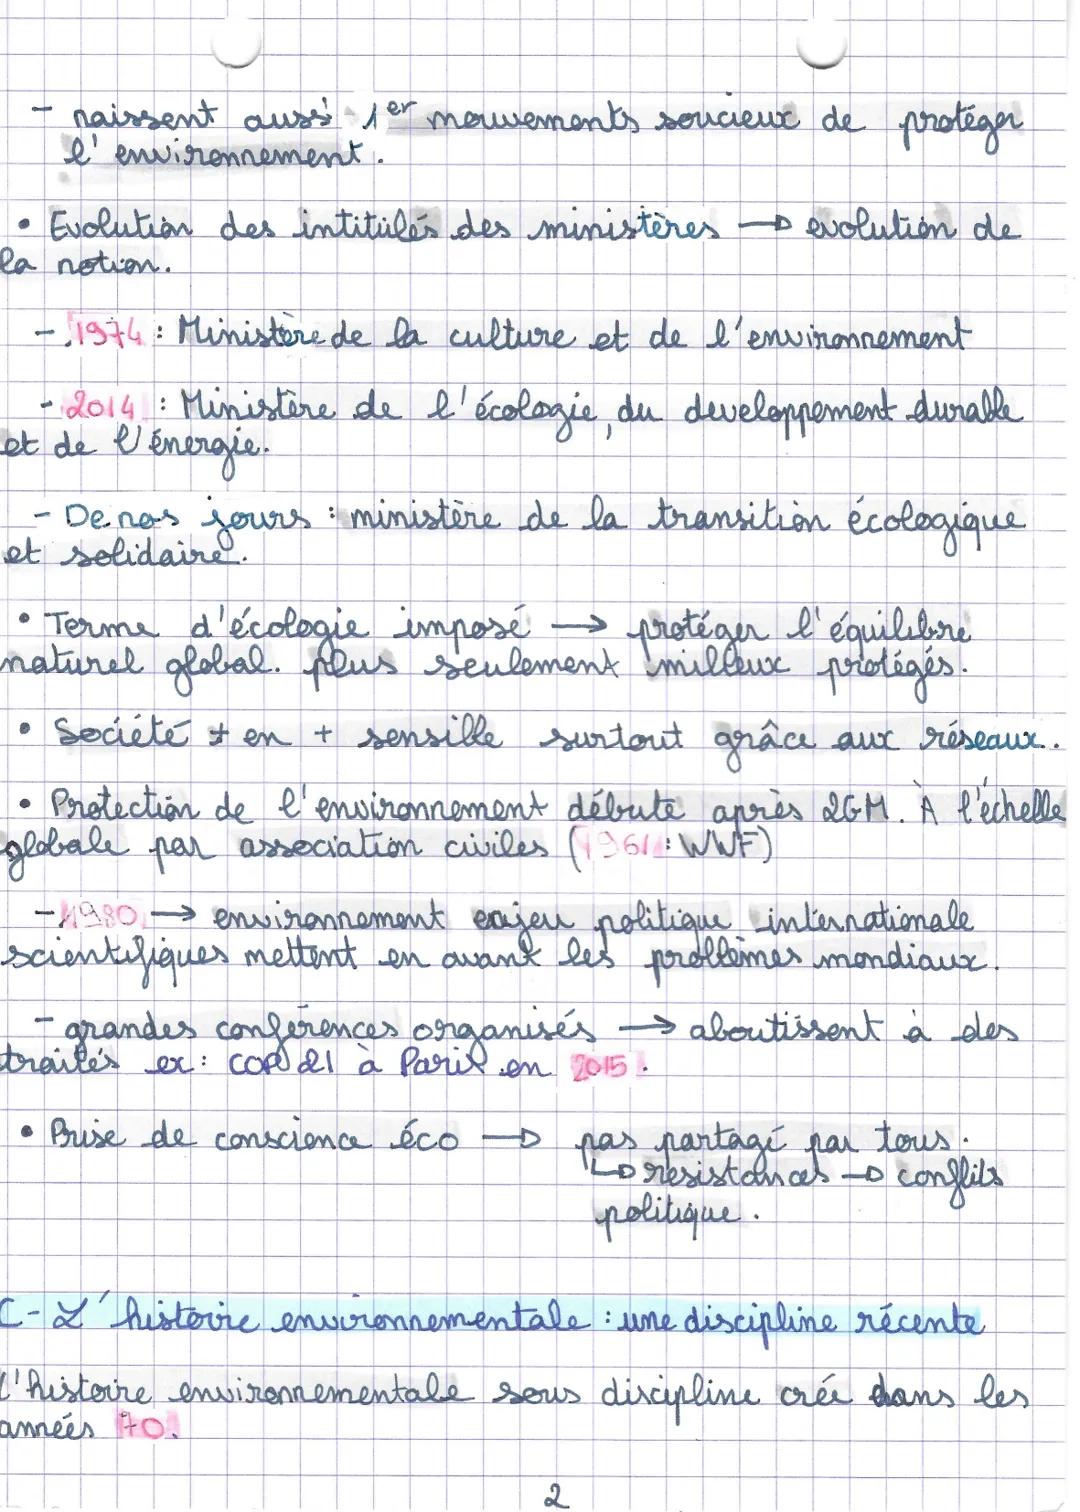 - naissent aussi 1er mouvements soucieux de protéger
l'environnement.
• Evolution des intitulés des ministères → evolution de
la notion.
- 1974 : Ministère de la culture et de l'environnement
- 2014 : Ministère de l'écologie, du developpement durable
et de l'énergie.
- De nos jours : ministère de la transition écologique
et solidaire.
• Terme d'écologie imposé → protéger l'équilibre
naturel global. plus seulement milieux protégés.
• Société + en + sensible surtout grâce aux réseaux.
• Protection de l'environnement débute après 2GM. À l'échelle
globale par association civiles (1961 : WWF)
- 1980 → environnement enjeu politique internationale
scientifiques mettent en avant les problèmes mondiaux.
- grandes conférences organisés → aboutissent à des
traités ex : COP 21 à Paris en 2015.
• Prise de conscience éco → pas partagé par tous.
↳ resistances → conflits
politique.
C - L'histoire environnementale : une discipline récente
L'histoire environnementale sous discipline créé dans les
années 70.
2